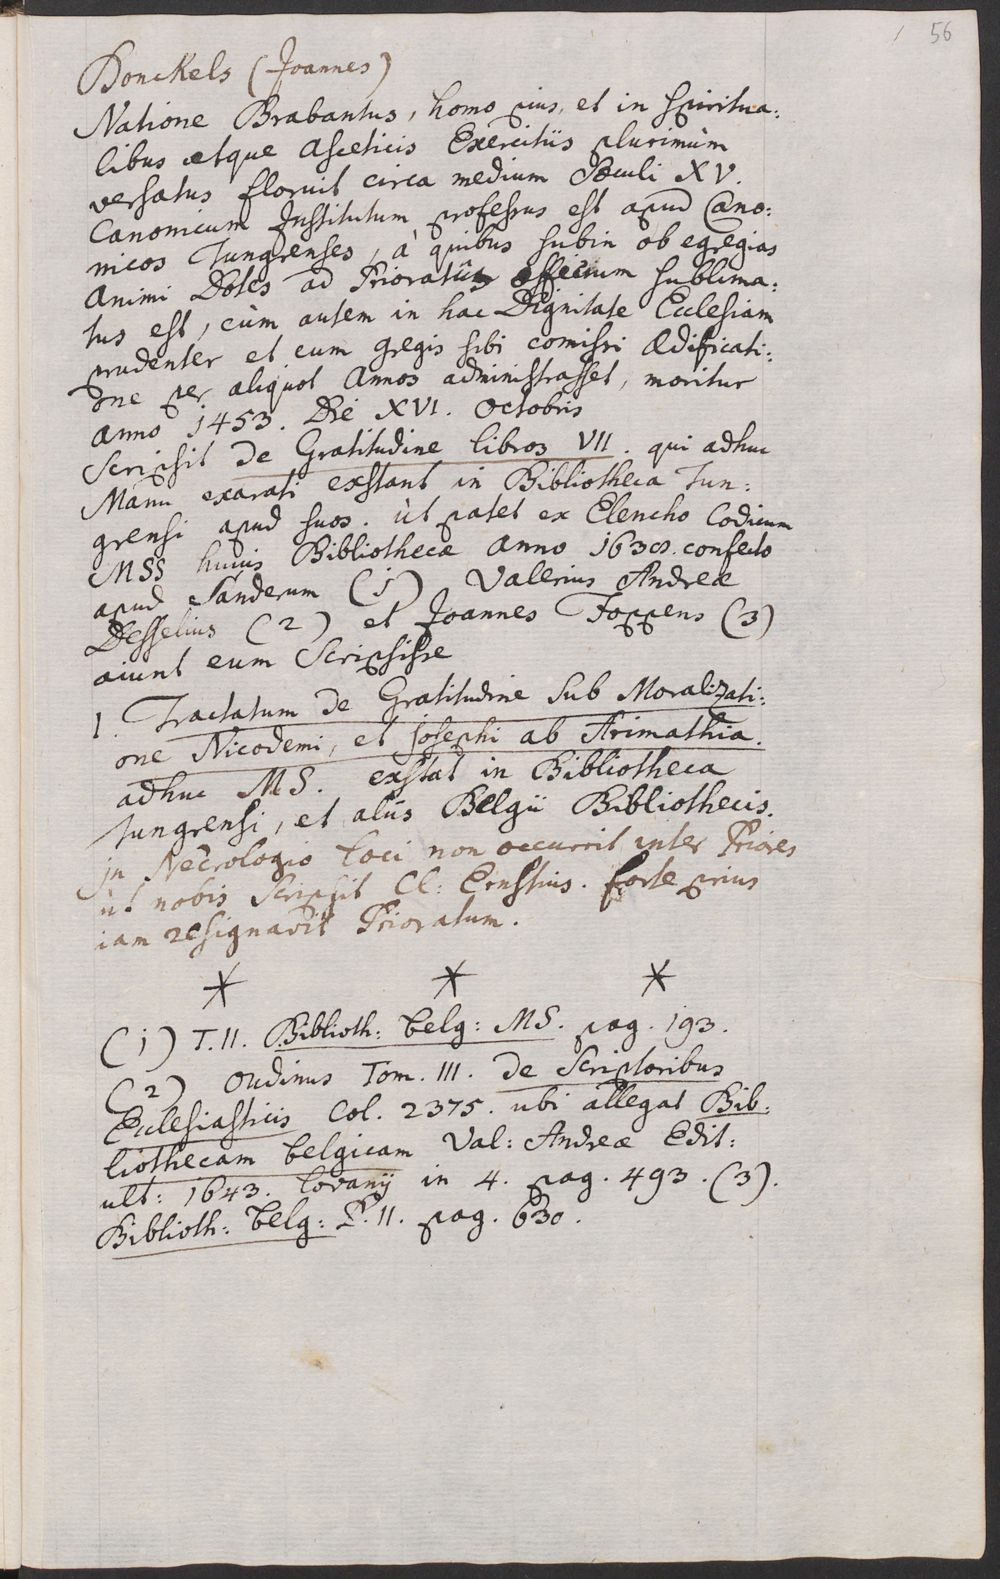 56
Donckels (Joannes)
Natione Brabantus, homo pius, et in spiritua:
libus atque asceticis Exercitiis plurimùm
versatus floruit circa medium Sæculi XV.
Canonicum Institutum professus est apud Cano:
nicos Tungrenses, à quibus subin ob egregias
animi Dotes ad Prioratûs officium sublima:
tus est, cùm autem in hac Dignitate Ecclesiam
prudenter et cum gregis sibi comissi Ædificati:
one per aliquot Annos administrasset, moritur
anno 1453. Die XVI. Octobris
Scripsit De Gratitudine libros VII. qui adhuc
Manu exarati exstant in Bibliotheca Tun:
grensi apud suos. ùt patet ex Elencho Codicum
MSS huius Bibliothecæ anno 1630. confecto
apud Sanderum (1) Valerius Andreæ
Desselius (2) et Joannes Foppens (3)
aiunt eum Scripsisse
1. Tractatum De Gratitudine sub Moralizati:
one Nicodemi, et Josephi ab Arimathia.
adhuc MS. exstat in Bibliotheca
Tungrensi, et aliis Belgii Bibliothecis.
in Necrologio loci non occurrit inter Priores
ùt nobis scripsit Cl: Ernstius. forte prius
iam resignavit Prioratum.
* * *
(1) T. II. Biblioth: belg: MS. pag. 193.
(2) Oudinus Tom. III. De Scriptoribus
Ecclesiasticis Col. 2375. ubi allegat Bib:
liothecam belgicam Val: Andreæ Edit:
ult: 1643. lovanij in 4. pag. 493. (3).
Biblioth: belg: P. II. pag. 630.